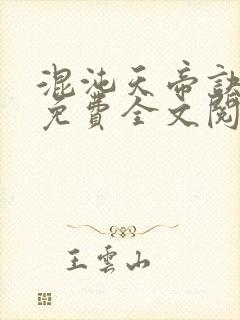 混沌天帝訣
免費全文閱
王雲山